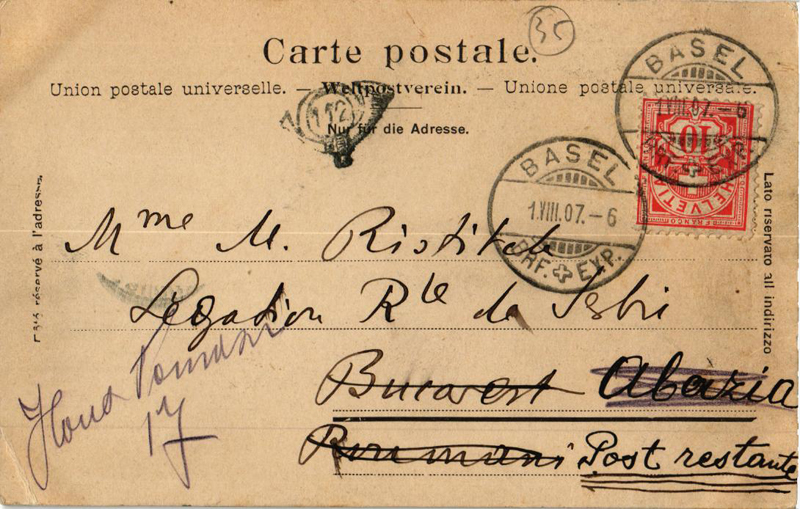 35
Carte postale.
Union postale universelle. — Weltpostverein. — Unione postale universale.
Nur für die Adresse.
112
BASEL
1.VIII.07.–6
BRF. EXP.
BASEL
1.VIII.07.–6
BRF. EXP.
10
HELVETIA
FRANCO
Côté réservé à l'adresse.
Lato riservato all indirizzo
Mme M. Ristitch
Légation Rle de Serbi
Bucarest Abazia
Roumani Post restante
17